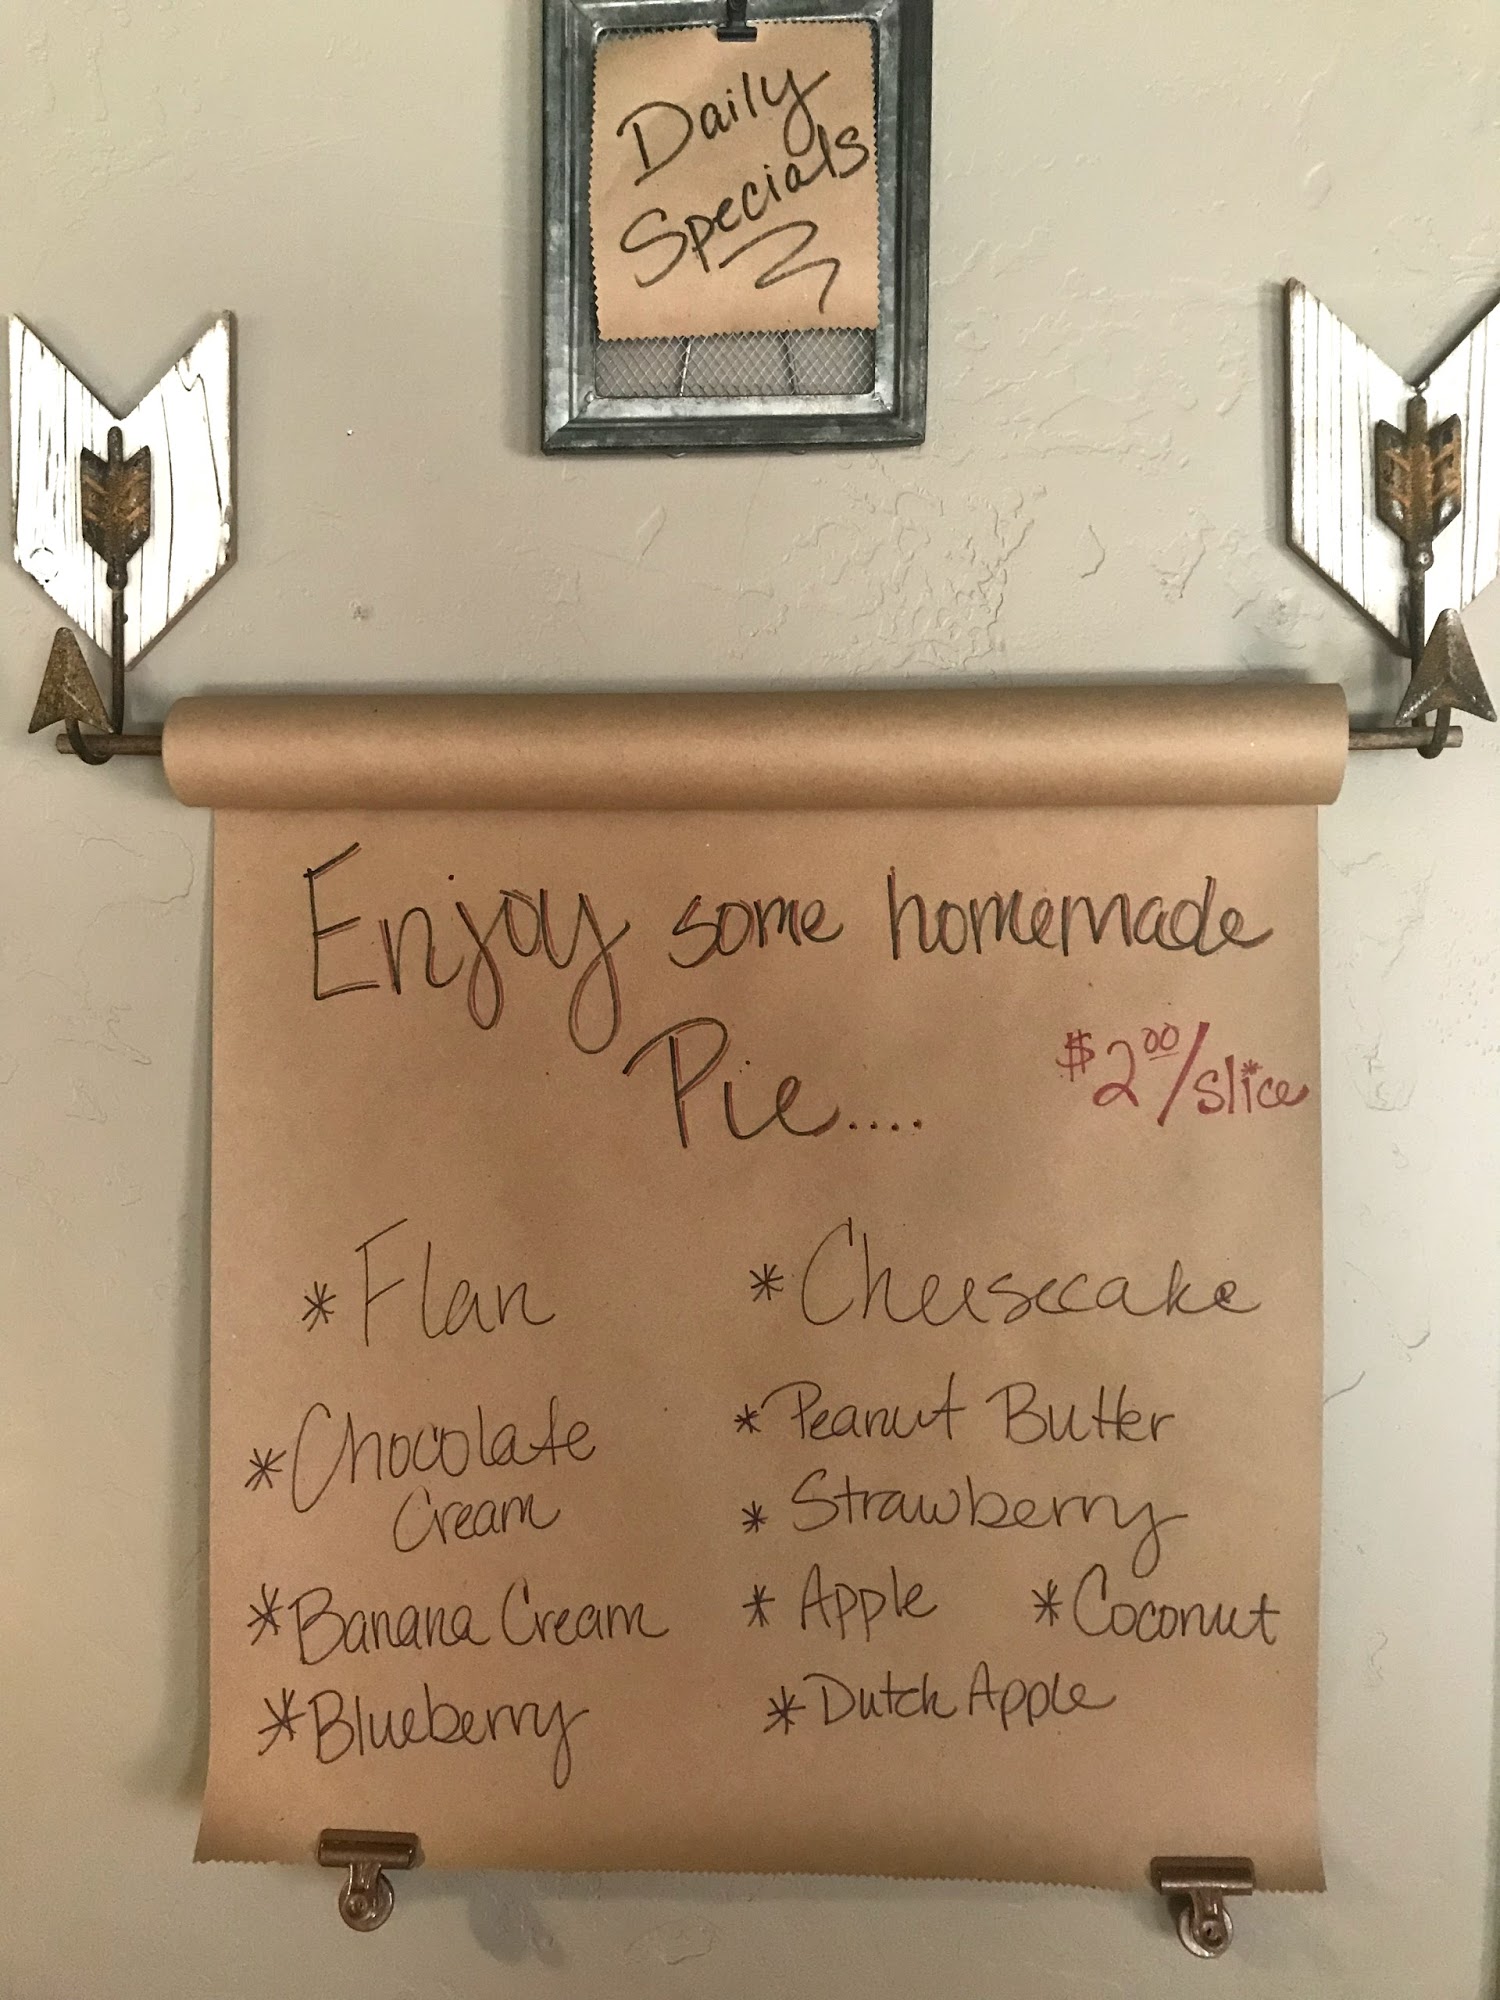 Daily
Specials
Enjoy some homemade
Pie....
$2.00/slice
* Flan
* Chocolate
Cream
* Banana Cream
* Blueberry
* Cheesecake
* Peanut Butter
* Strawberry
* Apple * Coconut
* Dutch Apple